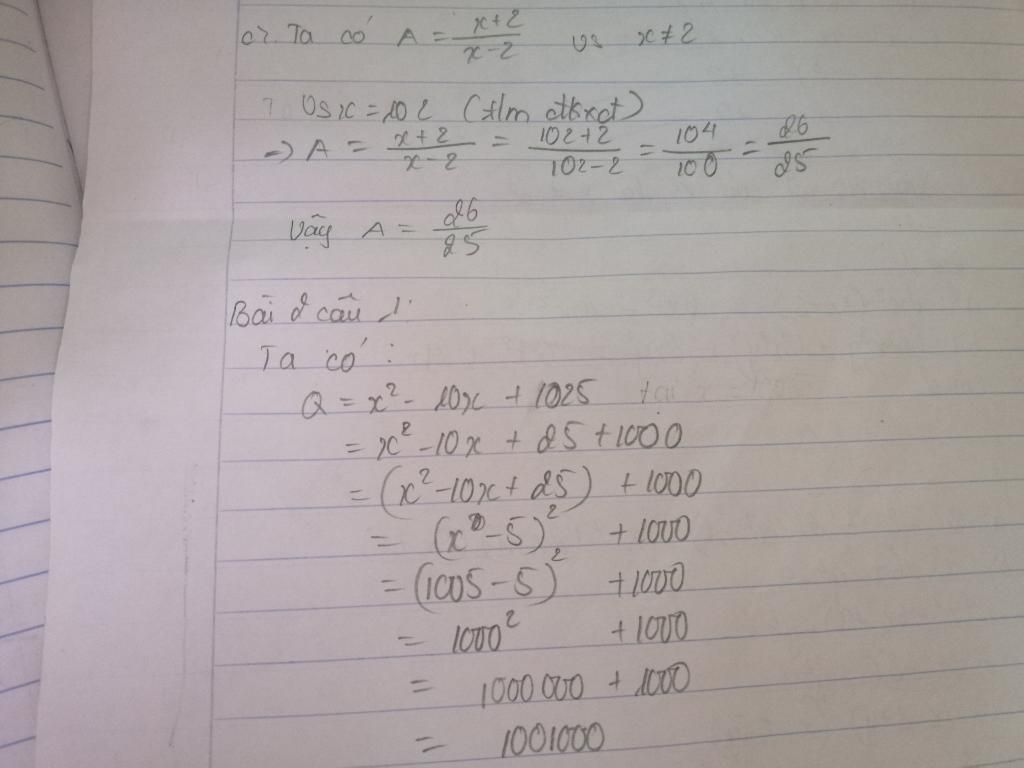 c). Ta có A = \frac{x+2}{x-2} vs x ≠ 2
Vs x = 102 (tlm đkxđ)
=> A = \frac{x+2}{x-2} = \frac{102+2}{102-2} = \frac{104}{100} = \frac{26}{25}
Vậy A = \frac{26}{25}
Bài 2 câu 1:
Ta có :
Q = x² - 10x + 1025
= x² - 10x + 25 + 1000
= (x² - 10x + 25) + 1000
= (x - 5)² + 1000
= (1005 - 5)² + 1000
= 1000² + 1000
= 1000 000 + 1000
= 1001000